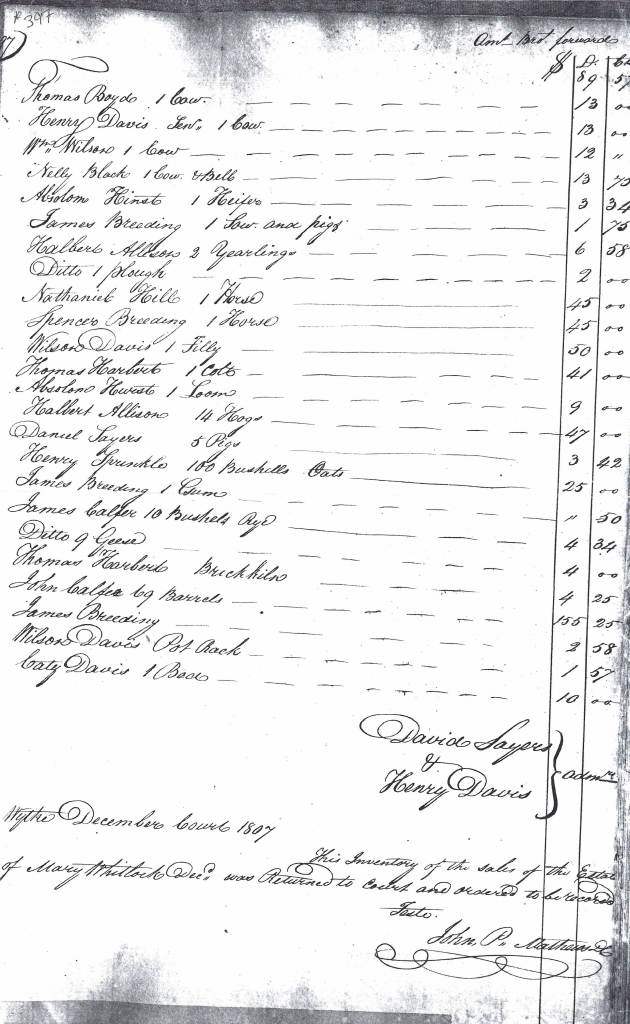 Amt. Brot. forward
$ D. C
89 57
Thomas Boyd 1 Cow 13 00
Henry Davis Senr. 1 Cow 13 00
Wm. Wilson 1 Cow 12 "
Nelly Black 1 Cow & Bell 13 75
Absolom Hinst 1 Heifer 3 34
James Breeding 1 Sow and pigs 1 75
Halbert Allison 2 Yearlings 6 58
Ditto 1 plough 2 00
Nathaniel Hill 1 Horse 45 00
Spencer Breeding 1 Horse 45 00
Wilson Davis 1 Filly 50 00
Thomas Harbert 1 Colt 41 00
Absolom Hurst 1 Loom 9 00
Halbert Allison 14 Hogs 47 00
Daniel Sayers 5 Pigs 3 42
Henry Sprinkle 100 Bushells Oats 25 00
James Breeding 1 Gum " 50
James Calfee 10 Bushels Rye 4 34
Ditto 9 Geese 4 00
Thomas Harbert Brickkiln 4 25
John Calfee 69 Barrels 155 25
James Breeding 2 58
Wilson Davis Pot Rack 1 57
Caty Davis 1 Bed 10 00
David Sayers
&
Henry Davis
} admr.
Wythe December Court 1807
This Inventory of the sales of the Estate
of Mary Whitlock Decd. was Returned to Court and ordered to be record
Teste.
John P. Mathews